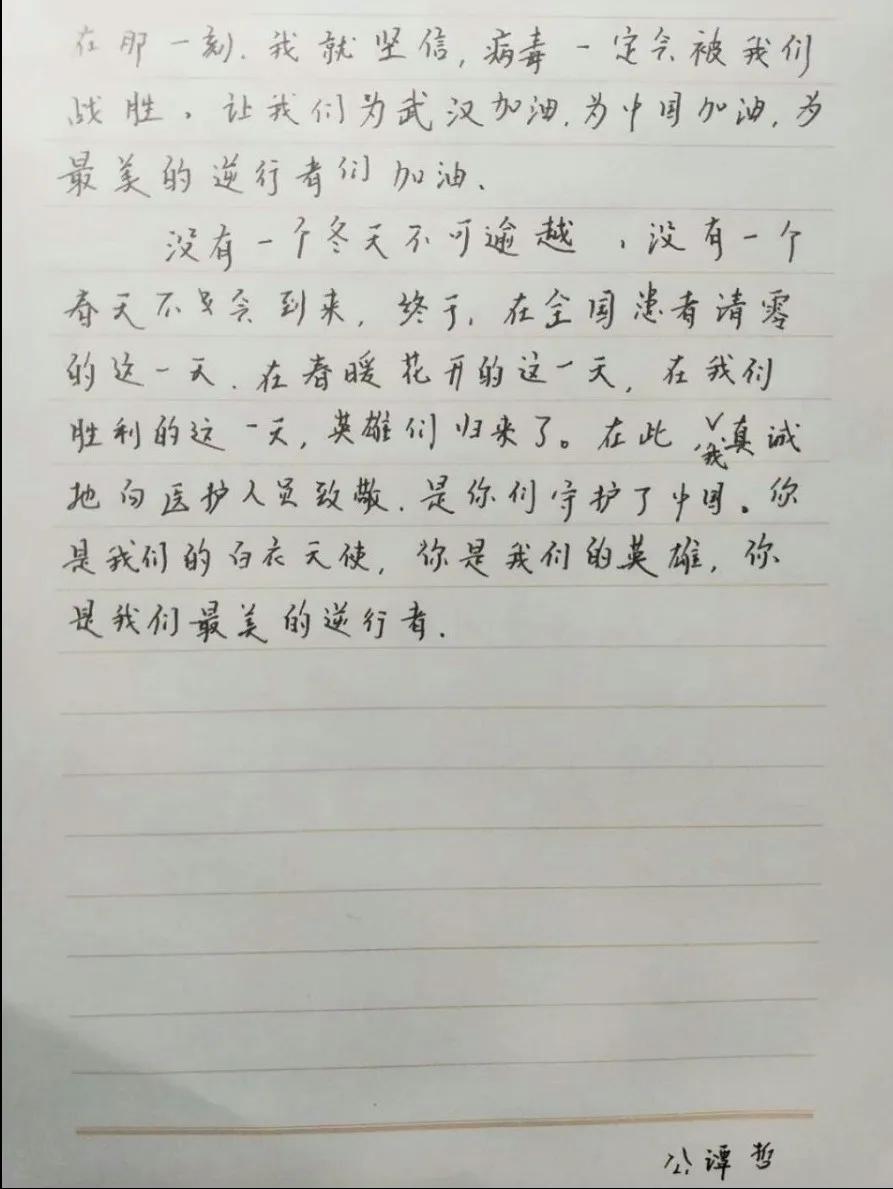 在那一刻.我就坚信,病毒一定会被我们
战胜。让我们为武汉加油.为中国加油,为
最美的逆行者们加油、
没有一个冬天不可逾越，没有一个
春天不会到来,终于,在全国患者清零
的这一天.在春暖花开的这一天,在我们
胜利的这一天,英雄们归来了。在此我真诚
地向医护人员致敬.是你们守护了中国。你
是我们的白衣天使,你是我们的英雄,你
是我们最美的逆行者.
公谭哲